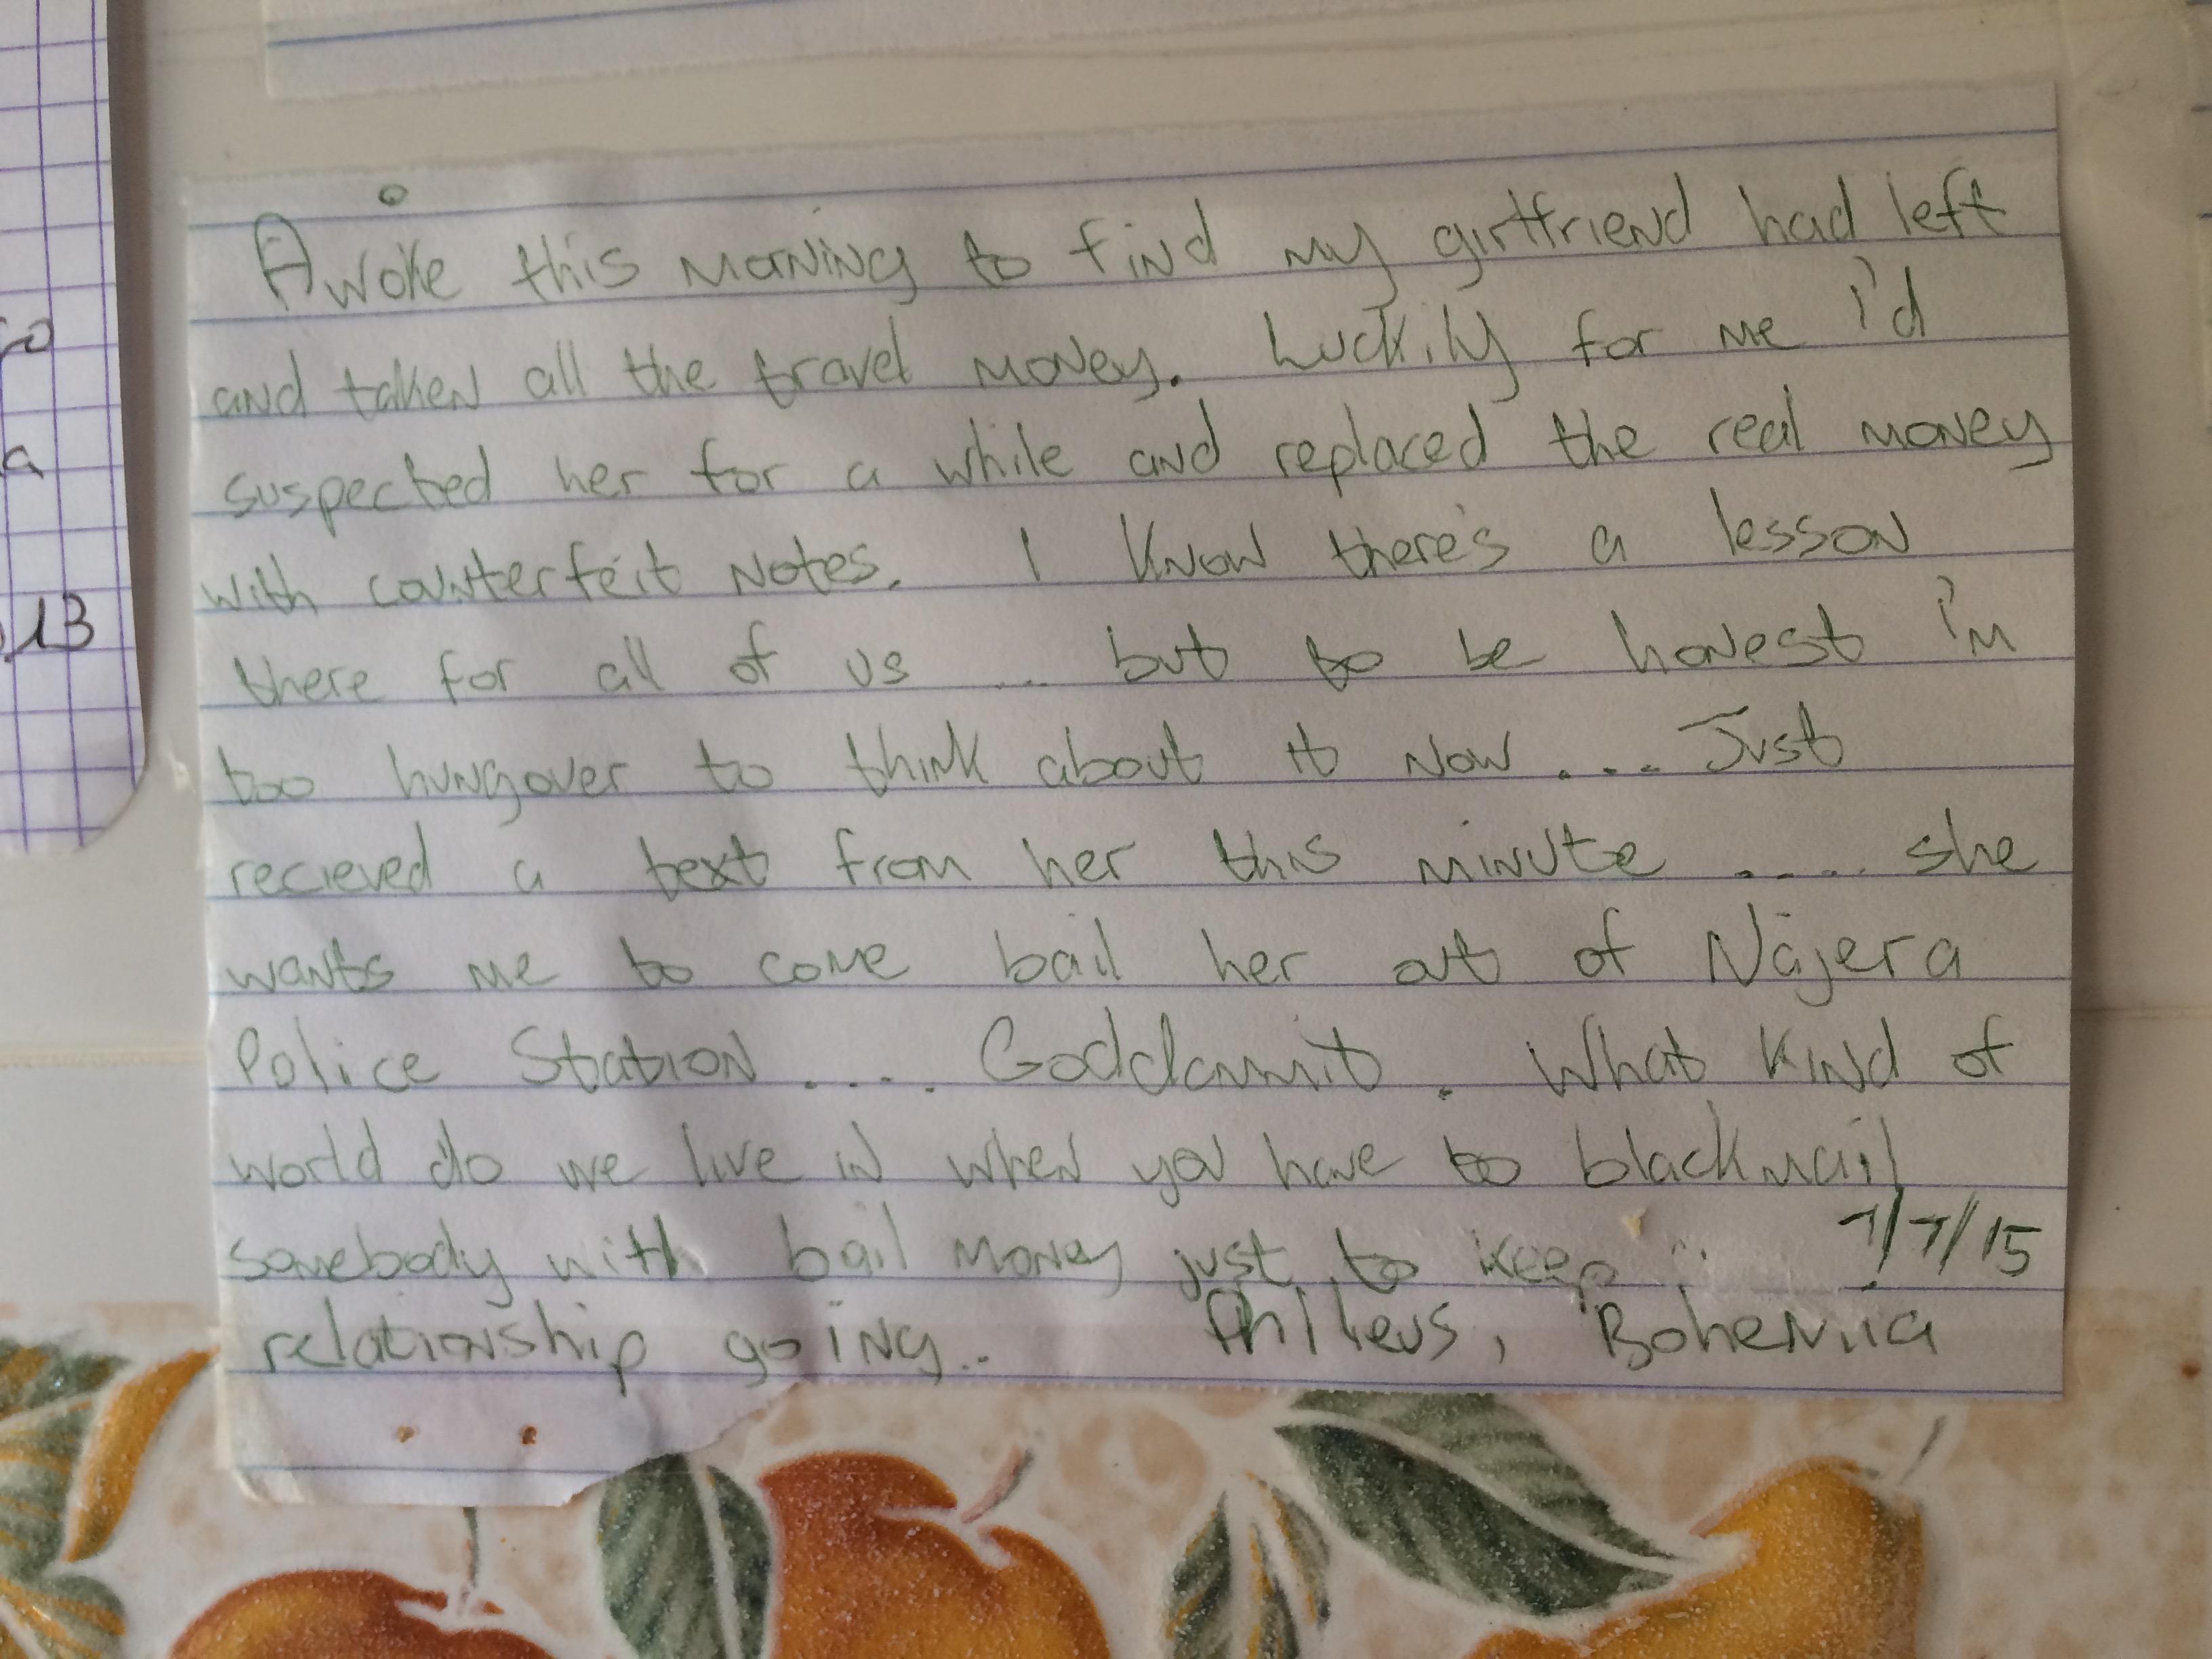 Awoke this morning to find my girlfriend had left
and taken all the travel money. Luckily for me i'd
suspected her for a while and replaced the real money
with counterfeit notes. I know there's a lesson
there for all of us ... but to be honest i'm
too hungover to think about it now .... Just
recieved a text from her this minute ..... she
wants me to come bail her out of Nájera
Police Station ..... Goddammit. What kind of
world do we live in when you have to blackmail
somebody with bail money just to keep
7/7/15
relationship going.. Bohemia
13
a